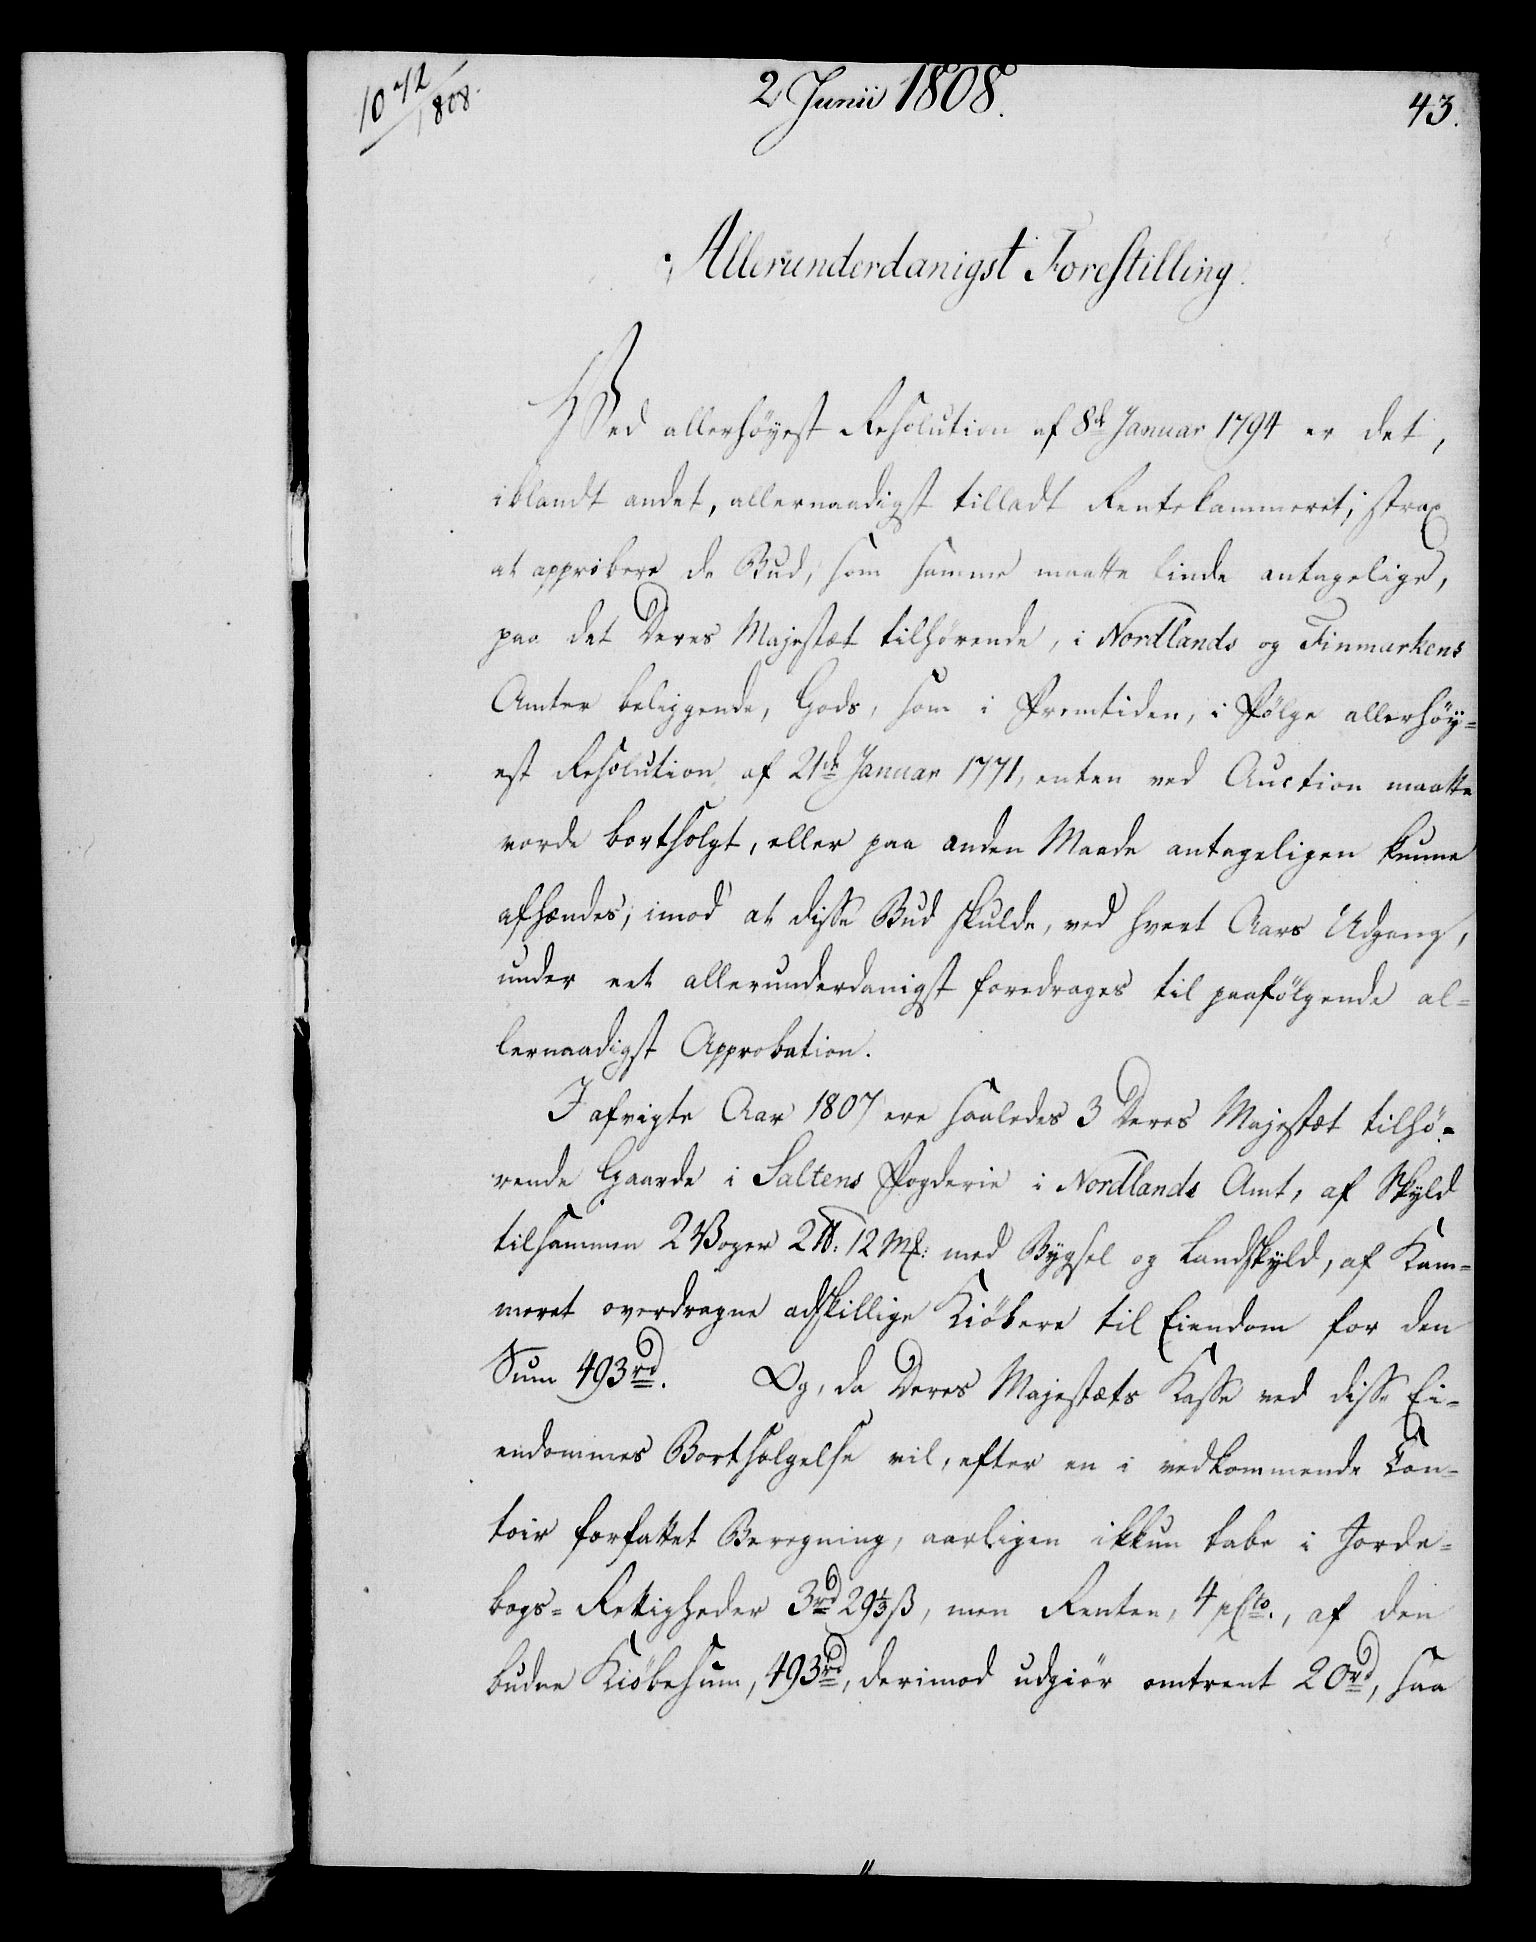 1042/1808.
2 Junii 1808.
43.
Allerunderdanigst Forestilling.
Ved allerhöyest Resolution af 8de Januar 1794 er det,
iblandt andet, allernaadigst tilladt Rentekammeret, strax
at approbere de Bud, som samme maatte finde antagelige,
paa det Deres Majestæt tilhörende, i Nordlands og Finmarkens
Amter beliggende, Gods, som i Fremtiden, i Fölge allerhöy=
est Resolution af 21de Januar 1771, enten ved Auction maatte
vorde bortsolgt, eller paa anden Maade antageligen kunne
afhændes; imod at disse Bud skulde, ved hvert Aars Udgang,
under eet allerunderdanigst foredrages til paafölgende al=
lernaadigst Approbation.
I afvigte Aar 1807 ere saaledes 3 Deres Majestæt tilhö=
rende Gaarde i Saltens Fogderie i Nordlands Amt, af Skyld
tilsammen 2 Voger 2 ℔: 12 Mk: med Bygsel og Landskyld, af Kam=
meret overdragne adskillige Kiöbere til Eiendom for den
Sum 493 rd. Og, da Deres Majestæts Kasse ved disse Ei=
endommes Bortsælgelse vil, efter en i vedkommende Con=
toir forfattet Beregning, aarligen ikkun tabe i Jorde=
bogs=Rettigheder 3 rd 29⅓ ß, men Renten, 4 pCto., af den
budne Kiöbesum, 493 rd, derimod udgiör omtrent 20 rd, saa